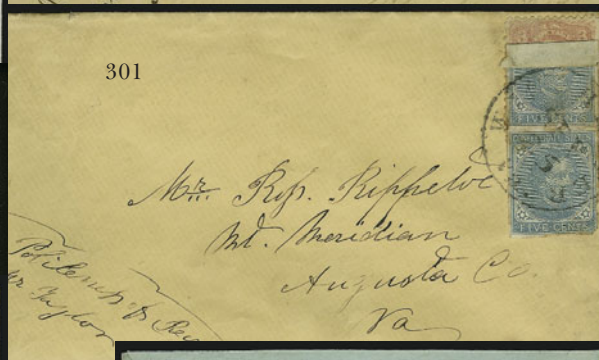 301
FIVE CENTS
FIVE CENTS
Mr. Kippetoe
Mt. Meridian
Augusta Co.
Va
Politeness of Rev
Mr Taylor